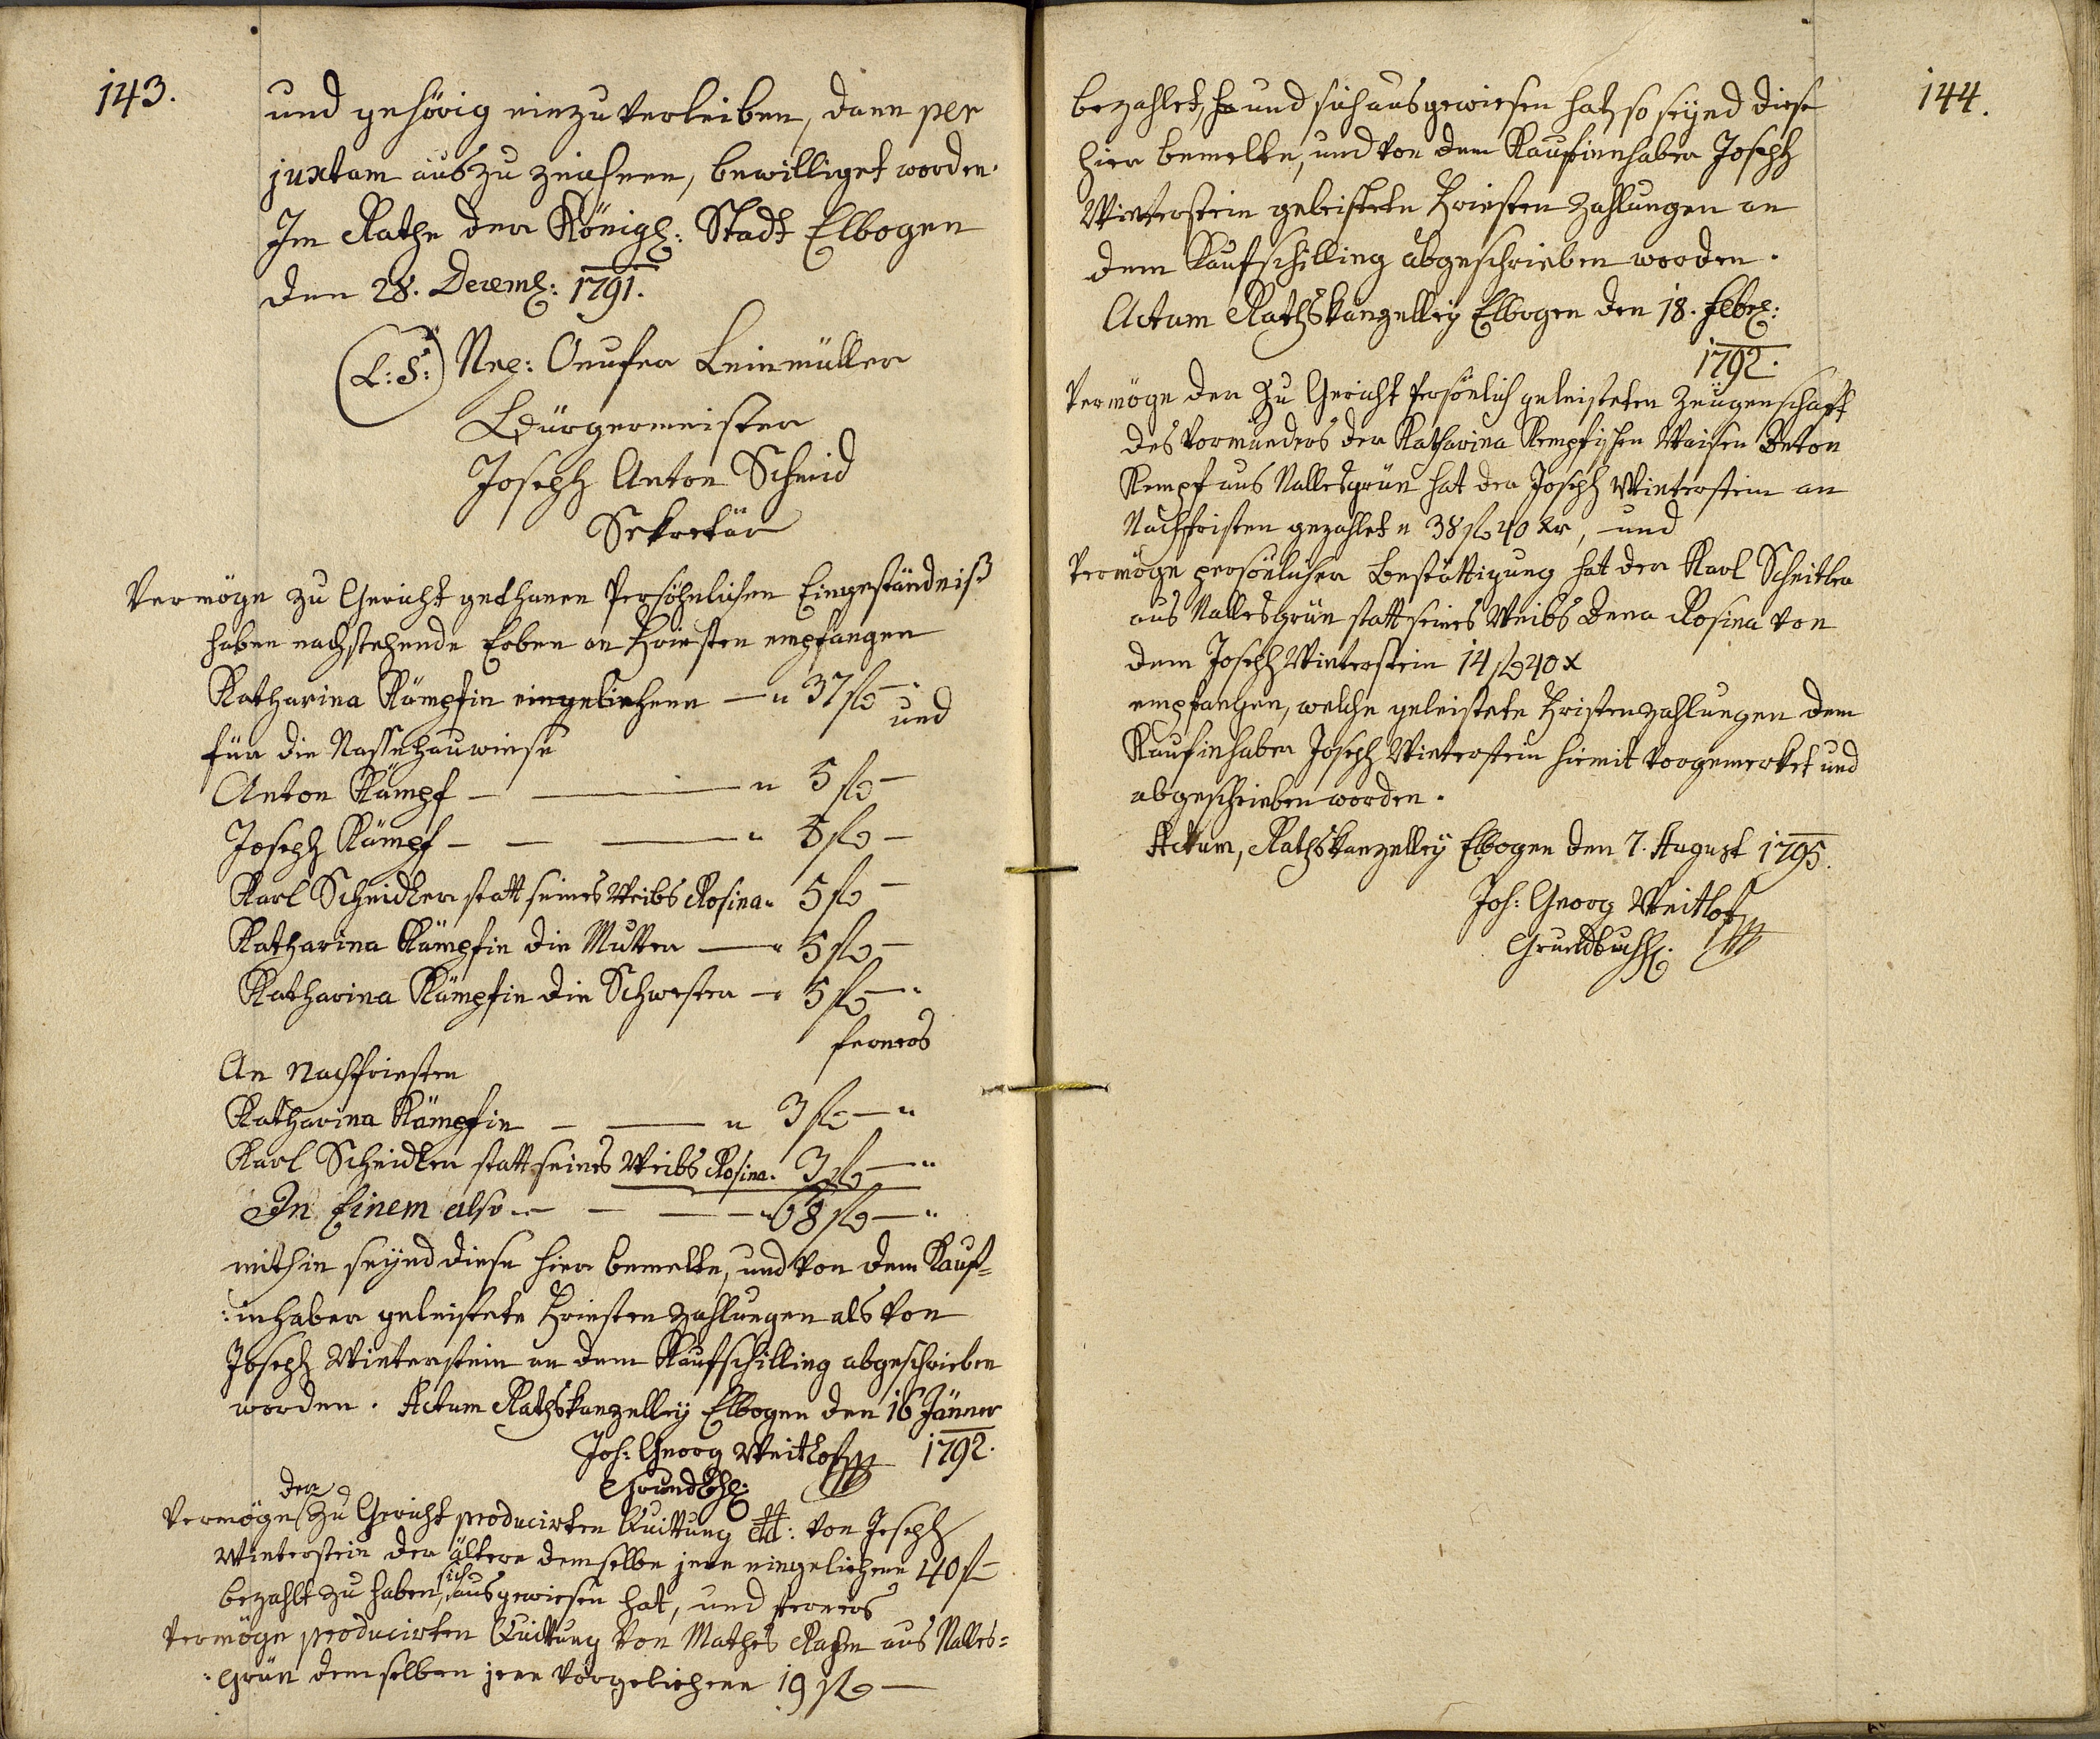 143.
und gehörig einzuverleiben, dann per
juxtam auszuzeichnen, bewilliget worden.
Im Rathe der Königl: Stadt Elbogen
den 28. Decemb: 1791.
(L: S:) Onufer Leinmüller
Bürgermeister
Joseph Anton Schmid
Sekretär
Vermöge zu Gericht gethanen Persöhnlichen Eingeständniß
haben nachstehende Erben an Friesten empfangen
Katharina Kämpfin eingeliehene — " 37 fl — "
und
für die Nassehauwiese
Anton Kämpf — — " 5 fl —
Joseph Kämpf — — — " 5 fl —
Karl Scheidler statt seines Weibs Rosina " 5 fl —
Katharina Kämpfin die Mutter — " 5 fl —
Katharina Kämpfin die Schwester — " 5 fl — "
ferners
An Nachfriesten
Katharina Kämpfin — — " 3 fl — "
Karl Scheidler statt seines Weibs Rosina " 3 fl — "
In Einem also — — — " 68 fl — "
mithin seynd diese hier bemelte, und von dem Kauf=
:inhaber geleistete Friesten Zahlungen als von
Joseph Winterstein an dem Kaufschilling abgeschrieben
worden. Actum Rathskanzelley Elbogen den 16 Jänner
1792.
Joh: Georg Weithof
Vermöge der zu Gericht producirten Quittung von Joseph
Winterstein der ältere demselbe jene eingeliehene 40 fl —
bezahlt zu haben, sich ausgewiesen hat, und ferners
Vermöge producirten Quittung von Mathes aus Nalles=
:grün demselben jene vorgeliehene 19 fl —
144.
bezahlet, und sich ausgewiesen hat, so seynd diese
hier bemelte, und von dem Kaufinnhaber Joseph
Winterstein geleistete Friesten Zahlungen an
dem Kaufschilling abgeschrieben worden.
Actum Rathskanzelley Elbogen den 18.
1792.
Vermöge der zu Gericht Persönlich geleisteten Zeügenschaft
des Vormünders der Katharina Kempfischen Waisen Anton
Kempf aus Nallesgrün hat der Joseph Winterstein an
Nachfristen gezahlet " 38 fl 40 xr, und
Vermöge persönlicher Bestättigung hat der Karl Scheitler
aus Nallesgrün statt seines Weibs Anna Rosina von
dem Joseph Winterstein 14 fl 40 x
empfangen, welche geleistete Fristenzahlungen dem
Kaufinhaber Joseph Winterstein hiemit vorgemerket und
abgeschrieben worden.
Actum, Rathskanzelley Elbogen den 7. August 1795.
Joh: Georg Weithof
Grundbuchh: